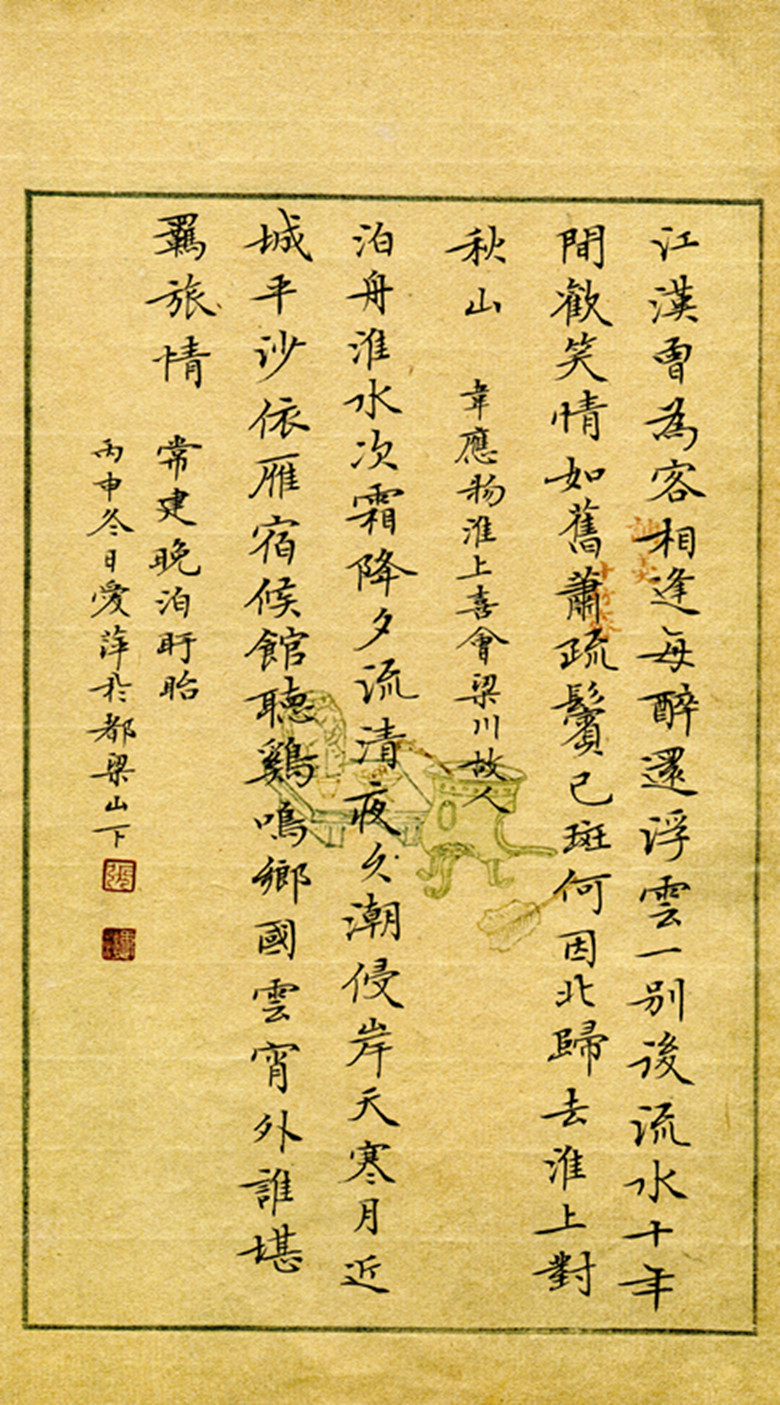 江漢曾為客相逢每醉還浮雲一別後流水十年
間歡笑情如舊蕭疏鬢已斑何因北歸去淮上對
秋山
韋應物淮上喜會梁川故人
泊舟淮水次霜降夕流清夜久潮侵岸天寒月近
城平沙依雁宿候館聽鷄鳴鄉國雲宵外誰堪
羈旅情
常建晚泊盱眙
丙申冬日愛萍於都梁山下